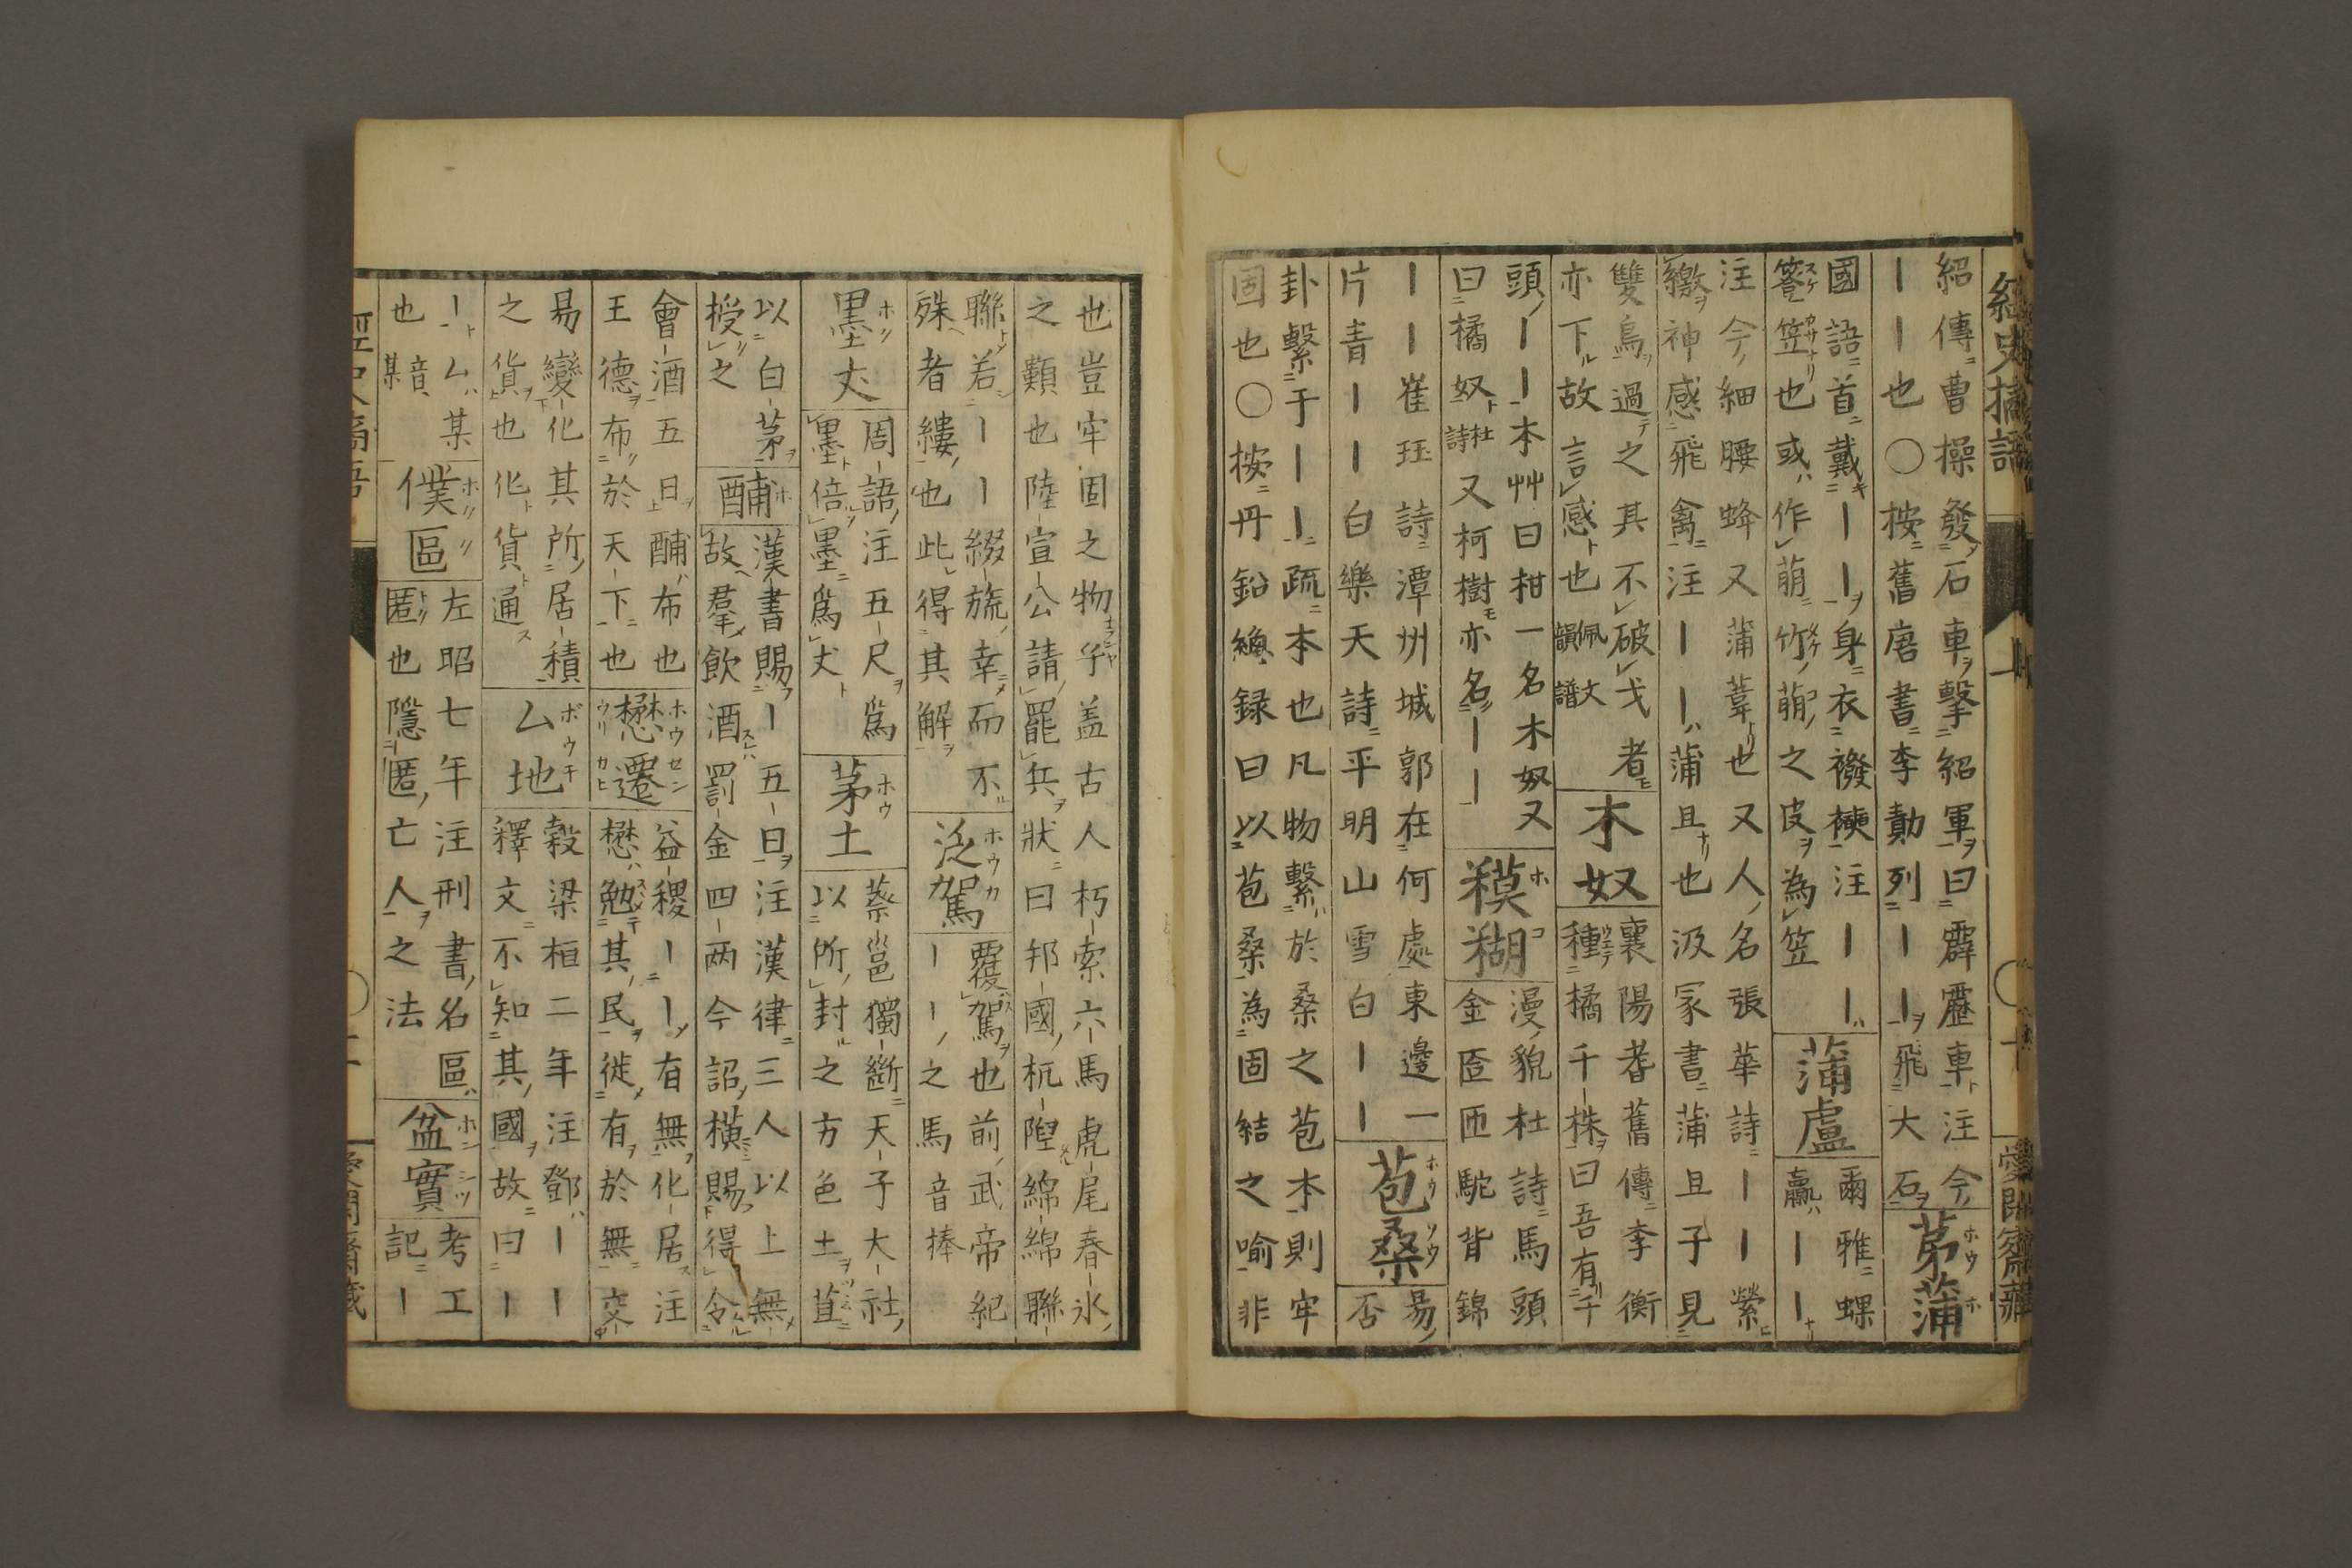 經史摘語
愛閒齋藏
紹傳曹操發石車擊紹軍曰霹靂車注今
ーー也〇按舊唐書李勣列ーー飛大石
茅蒲
國語首戴ーー身衣襏襫注ーー
簦笠也或作萠竹萠之皮為笠
蒲盧
爾雅蜾
蠃ーー
注今細腰蜂又蒲葦也又人名張華詩ーー縈
繳神感飛禽注ーー蒲且也汲冢書蒲且子見
雙鳥過之其不破弋者
亦下故言感也
佩文
韻譜
木奴
襄陽耆舊傳李衡
種橘千株曰吾有千
頭ーー本艸曰柑一名木奴又
曰橘奴
杜詩
又柯樹亦名ーー
糢糊
漫貌杜詩馬頭
金匼匝駝背錦
ーー崔珏詩潭州城郭在何處東邊一
片青ーー白樂天詩平明山雪白ーー
苞桑
易
否
卦繫于ーー疏本也凡物繫於桑之苞本則牢
固也〇按丹鉛總録曰以苞桑為固結之喻非
也豈牢固之物乎盖古人朽索六馬虎尾春氷
之類也陸宣公請罷兵狀曰邦國杌隉綿綿聯
聯若ーー綴旒幸而不
殊者縷也此得其解
泛駕
覆駕也前武帝紀
ーー之馬音捧
墨丈
周語注五尺為
墨倍墨為丈
茅土
蔡邕獨斷天子大社
以所封之方色土苴
以白茅
授之
酺
漢書賜ー五日注漢律三人以上無
故羣飲酒罰金四兩今詔橫賜得令
會酒五日酺布也
王德布於天下也
懋遷
益稷ーー有無化居注
懋勉其民徙有於無交
易變化其所居積
之貨也化貨通
厶地
穀梁桓二年注鄧ーー
釋文不知其國故曰ー
ー厶某
也音某
僕區
左昭七年注刑書名區
匿也隱匿亡人之法
盆實
考工
記ー